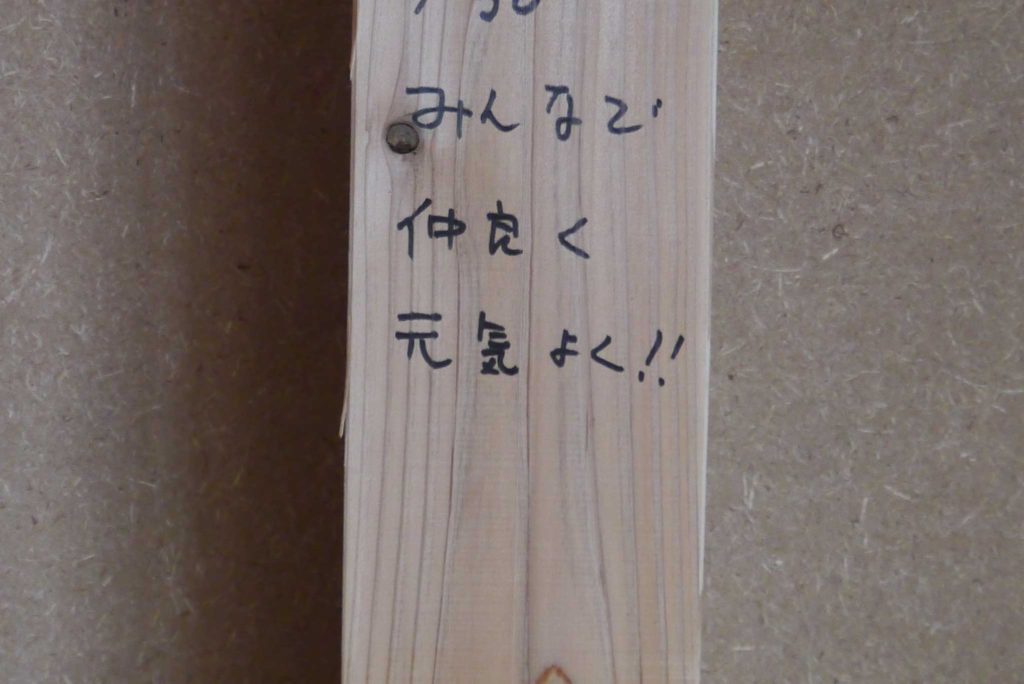 みんなで
仲良く
元気よく!!